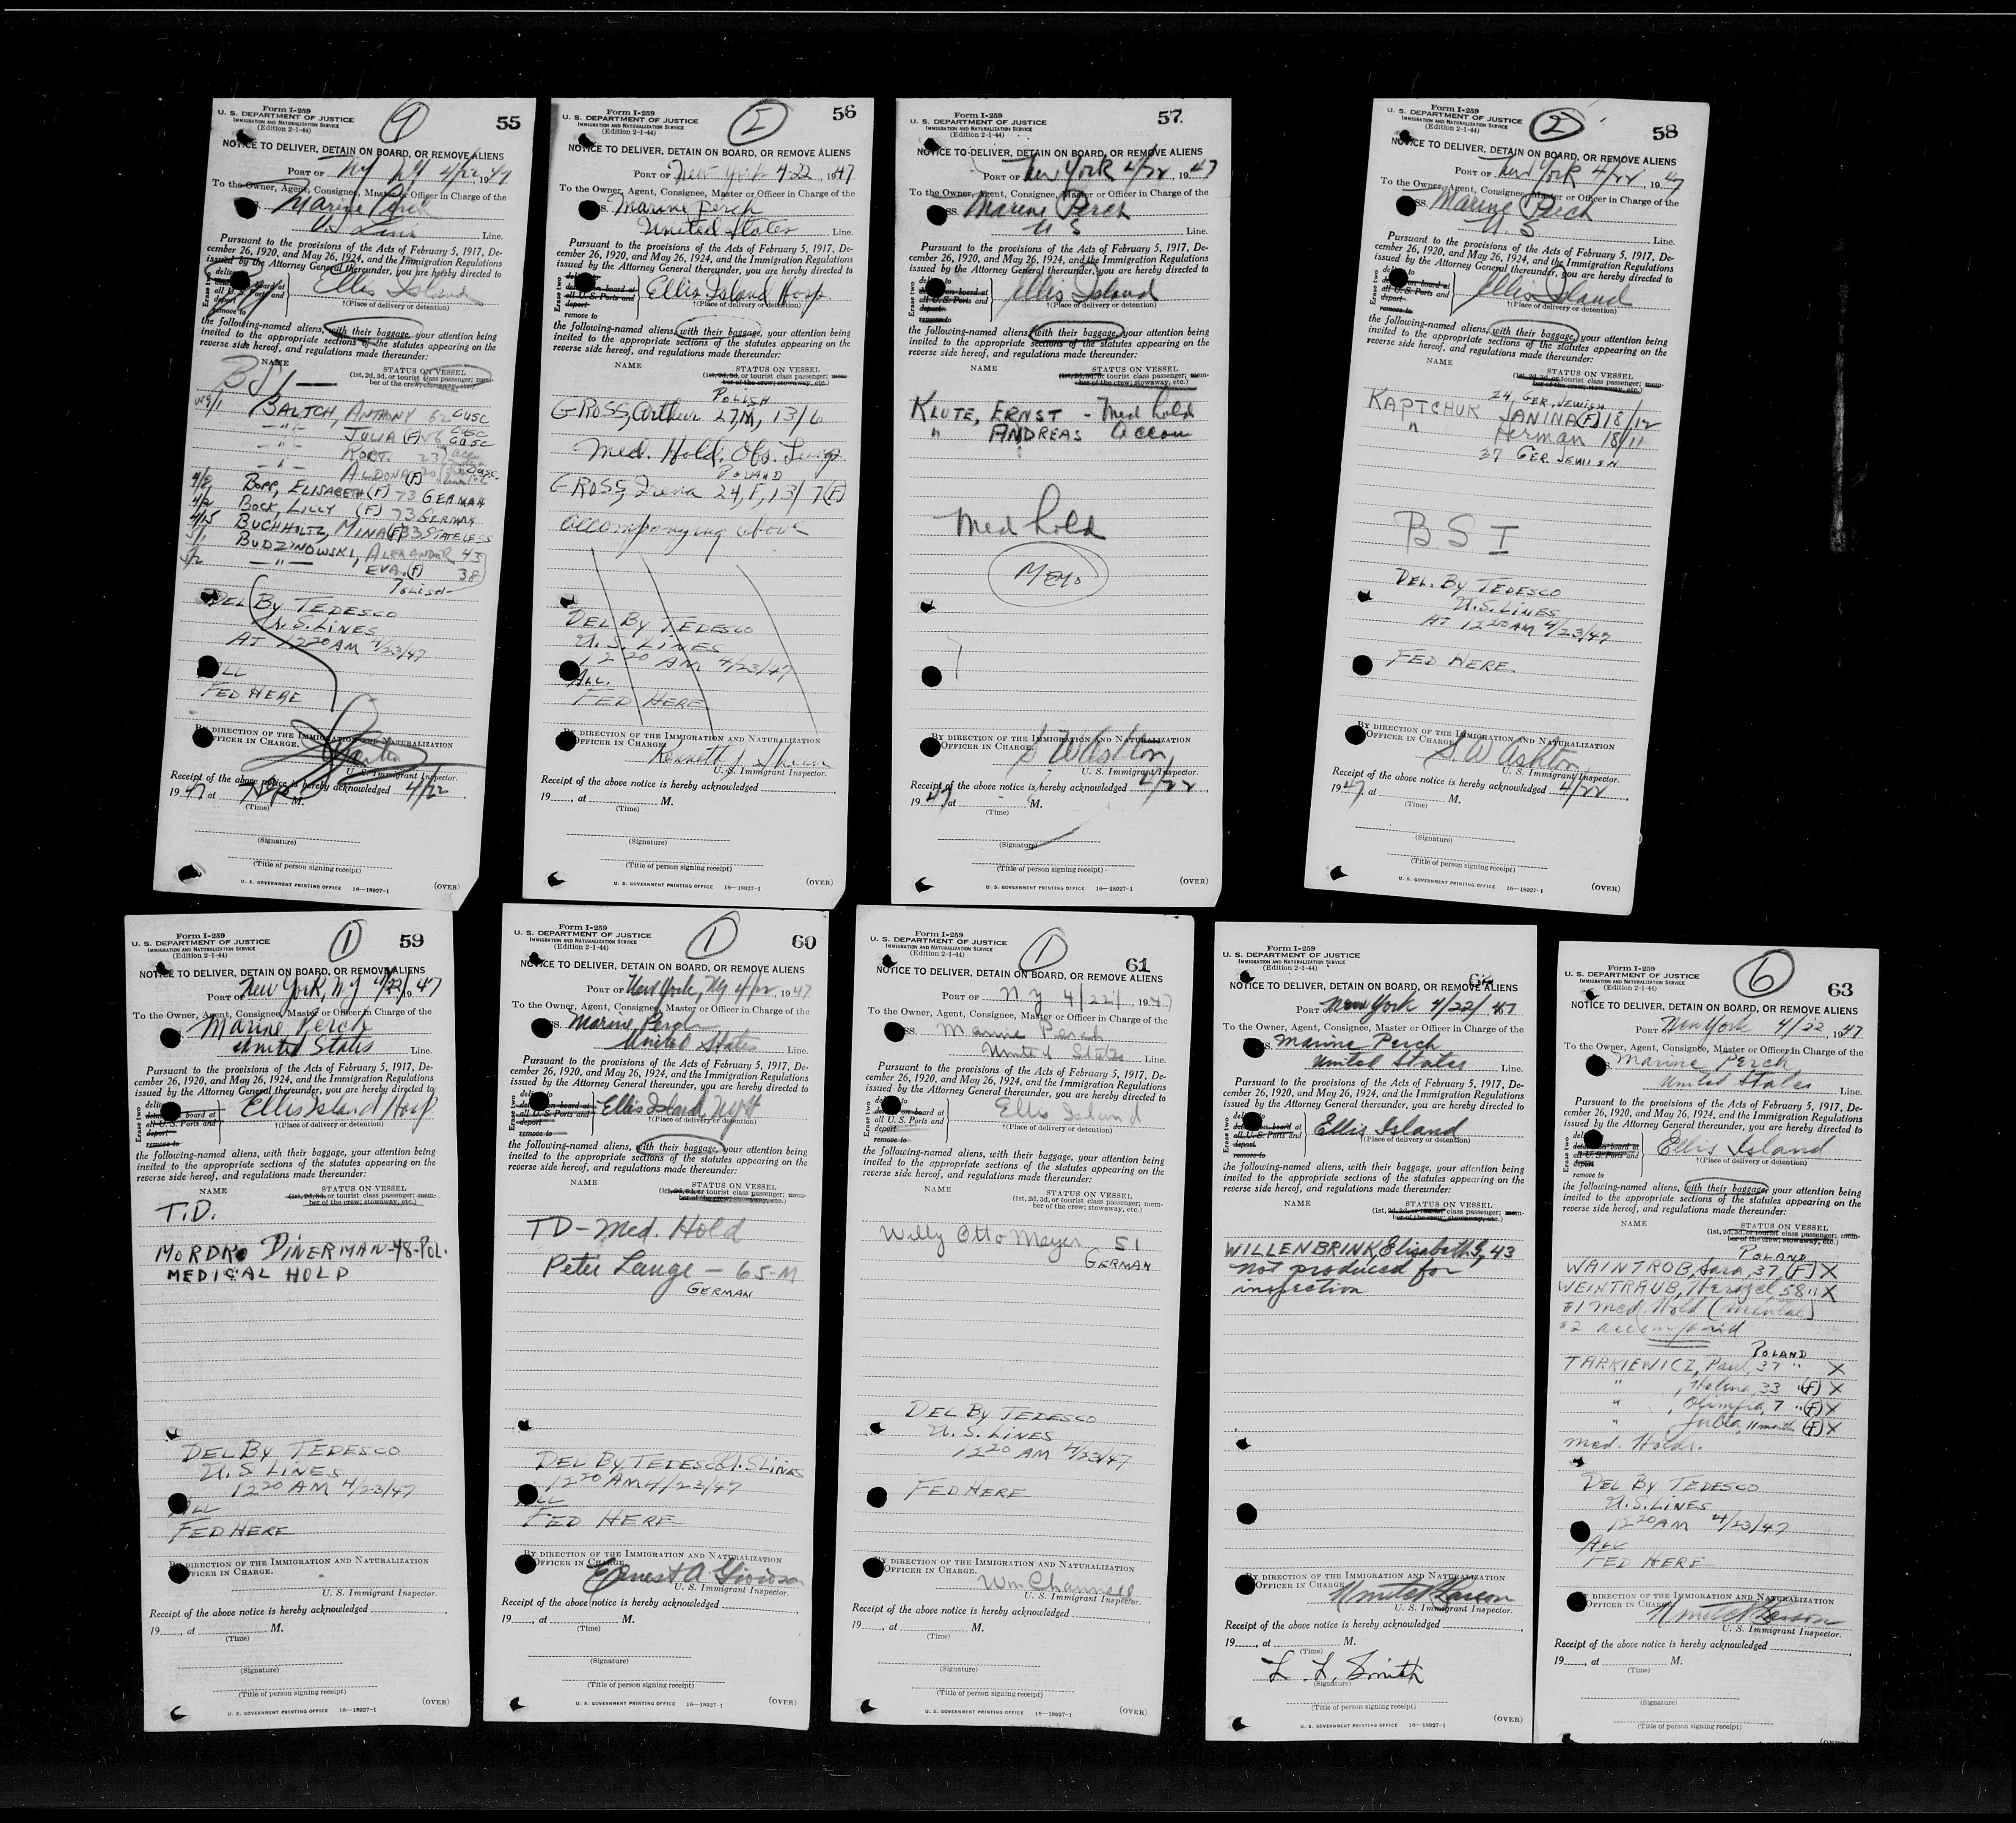 Form I-259
U. S. DEPARTMENT OF JUSTICE
IMMIGRATION AND NATURALIZATION SERVICE
(Edition 2-1-44)
9
55
NOTICE TO DELIVER, DETAIN ON BOARD, OR REMOVE ALIENS
PORT OF NY NY 4/22, 1947
To the Owner, Agent, Consignee, Master or Officer in Charge of the
Marine Perch
U.S. Lines Line.
Pursuant to the provisions of the Acts of February 5, 1917, De-
cember 26, 1920, and May 26, 1924, and the Immigration Regulations
issued by the Attorney General thereunder, you are hereby directed to
Erase two
all U. S. Ports and
deport
remove to
Ellis Island
†(Place of delivery or detention)
the following-named aliens, with their baggage, your attention being
invited to the appropriate sections of the statutes appearing on the
reverse side hereof, and regulations made thereunder:
NAME
STATUS ON VESSEL
(1st, 2d, 3d, or tourist class passenger; mem-
ber of the crew; stowaway, etc.)
BSI
BALTCH, ANTHONY 62 CUSC
—"— JULIA (F) 56 CUSC
—"— ROBT. 23
—"— ALDONA (F) 20
BOPP, ELISABETH (F) 73 GERMAN
BOCK, LILLY (F) 73 GERMAN
4/15 BUCHHOLTZ, MINA (F) 33 STATELESS
5/1 BUDZINOWSKI, ALEXANDER 43
5/2 —"— EVA (F) 38
POLISH
DEL BY TEDESCO
U.S. LINES
AT 12 20 AM 4/23/47
ALL
FED HERE
BY DIRECTION OF THE IMMIGRATION AND NATURALIZATION
OFFICER IN CHARGE.
U. S. Immigrant Inspector.
Receipt of the above notice is hereby acknowledged 4/22
1947 at M.
(Time)
(Signature)
(Title of person signing receipt)
U. S. GOVERNMENT PRINTING OFFICE 16—18927-1
(OVER)
Form I-259
U. S. DEPARTMENT OF JUSTICE
IMMIGRATION AND NATURALIZATION SERVICE
(Edition 2-1-44)
56
NOTICE TO DELIVER, DETAIN ON BOARD, OR REMOVE ALIENS
PORT OF New York 4-22 1947
To the Owner, Agent, Consignee, Master or Officer in Charge of the
SS. Marine Perch
United States Line.
Pursuant to the provisions of the Acts of February 5, 1917, De-
cember 26, 1920, and May 26, 1924, and the Immigration Regulations
issued by the Attorney General thereunder, you are hereby directed to
Erase two
on board at
all U. S. Ports and
deport
remove to
Ellis Island Hosp
†(Place of delivery or detention)
the following-named aliens, with their baggage, your attention being
invited to the appropriate sections of the statutes appearing on the
reverse side hereof, and regulations made thereunder:
NAME
STATUS ON VESSEL
(1st, 2d, 3d, or tourist class passenger; mem-
ber of the crew; stowaway, etc.)
POLISH
GROSS, Arthur 27, M, 13/6
Med. Hold. Obs. Lungs
POLAND
GROSS, Irena 24, F, 13/7 (F)
accompanying above
DEL BY TEDESCO
U.S. LINES
12 20 AM 4/23/47
ALL.
FED HERE
BY DIRECTION OF THE IMMIGRATION AND NATURALIZATION
OFFICER IN CHARGE.
Kenneth J.
U. S. Immigrant Inspector.
Receipt of the above notice is hereby acknowledged
19___, at M.
(Time)
(Signature)
(Title of person signing receipt)
U. S. GOVERNMENT PRINTING OFFICE 16—18927-1
(OVER)
Form I-259
U. S. DEPARTMENT OF JUSTICE
IMMIGRATION AND NATURALIZATION SERVICE
(Edition 2-1-44)
57
NOTICE TO DELIVER, DETAIN ON BOARD, OR REMOVE ALIENS
PORT OF New York 4/22 1947
To the Owner, Agent, Consignee, Master or Officer in Charge of the
SS. Marine Perch
U S Line.
Pursuant to the provisions of the Acts of February 5, 1917, De-
cember 26, 1920, and May 26, 1924, and the Immigration Regulations
issued by the Attorney General thereunder, you are hereby directed to
Erase two
on board at
all U. S. Ports and
deport
remove to
Ellis Island
†(Place of delivery or detention)
the following-named aliens, with their baggage, your attention being
invited to the appropriate sections of the statutes appearing on the
reverse side hereof, and regulations made thereunder:
NAME
STATUS ON VESSEL
(1st, 2d, 3d, or tourist class passenger; mem-
ber of the crew; stowaway, etc.)
KLUTE, ERNST - Med hold
" ANDREAS accom
Med hold
MEMO
BY DIRECTION OF THE IMMIGRATION AND NATURALIZATION
OFFICER IN CHARGE.
S W Ashton
U. S. Immigrant Inspector.
Receipt of the above notice is hereby acknowledged 4/22
1947, at M.
(Time)
(Signature)
(Title of person signing receipt)
U. S. GOVERNMENT PRINTING OFFICE 16—18927-1
(OVER)
Form I-259
U. S. DEPARTMENT OF JUSTICE
IMMIGRATION AND NATURALIZATION SERVICE
(Edition 2-1-44)
2
58
NOTICE TO DELIVER, DETAIN ON BOARD, OR REMOVE ALIENS
PORT OF New York 4/22 1947
To the Owner, Agent, Consignee, Master or Officer in Charge of the
SS. Marine Perch
U. S Line.
Pursuant to the provisions of the Acts of February 5, 1917, De-
cember 26, 1920, and May 26, 1924, and the Immigration Regulations
issued by the Attorney General thereunder, you are hereby directed to
Erase two
on board at
all U. S. Ports and
deport
remove to
Ellis Island
†(Place of delivery or detention)
the following-named aliens, with their baggage, your attention being
invited to the appropriate sections of the statutes appearing on the
reverse side hereof, and regulations made thereunder:
NAME
STATUS ON VESSEL
(1st, 2d, 3d, or tourist class passenger; mem-
ber of the crew; stowaway, etc.)
24, GER. JEWISH
KAPTCHUK JANINA (F) 18/12
" Herman 18/11
37 GER JEWISH
B S I
DEL. BY TEDESCO
U.S. LINES
AT 12 20 AM 4/23/47
FED HERE
BY DIRECTION OF THE IMMIGRATION AND NATURALIZATION
OFFICER IN CHARGE.
S W Ashton
U. S. Immigrant Inspector.
Receipt of the above notice is hereby acknowledged 4/22
1947, at M.
(Time)
(Signature)
(Title of person signing receipt)
U. S. GOVERNMENT PRINTING OFFICE 16—18927-1
(OVER)
Form I-259
U. S. DEPARTMENT OF JUSTICE
IMMIGRATION AND NATURALIZATION SERVICE
(Edition 2-1-44)
1
59
NOTICE TO DELIVER, DETAIN ON BOARD, OR REMOVE ALIENS
PORT OF New York, NY 4/22/1947
To the Owner, Agent, Consignee, Master or Officer in Charge of the
Marine Perch
United States Line.
Pursuant to the provisions of the Acts of February 5, 1917, De-
cember 26, 1920, and May 26, 1924, and the Immigration Regulations
issued by the Attorney General thereunder, you are hereby directed to
Erase two
board at
all U. S. Ports and
deport
remove to
Ellis Island Hosp
†(Place of delivery or detention)
the following-named aliens, with their baggage, your attention being
invited to the appropriate sections of the statutes appearing on the
reverse side hereof, and regulations made thereunder:
NAME
STATUS ON VESSEL
(1st, 2d, 3d, or tourist class passenger; mem-
ber of the crew; stowaway, etc.)
T.D.
MORDKO DINERMAN-48-POL.
MEDICAL HOLD
DEL BY TEDESCO
U.S LINES
12 20 AM 4/23/47
ALL
FED HERE
BY DIRECTION OF THE IMMIGRATION AND NATURALIZATION
OFFICER IN CHARGE.
U. S. Immigrant Inspector.
Receipt of the above notice is hereby acknowledged
19___, at M.
(Time)
(Signature)
(Title of person signing receipt)
U. S. GOVERNMENT PRINTING OFFICE 16—18927-1
(OVER)
Form I-259
U. S. DEPARTMENT OF JUSTICE
IMMIGRATION AND NATURALIZATION SERVICE
(Edition 2-1-44)
1
60
NOTICE TO DELIVER, DETAIN ON BOARD, OR REMOVE ALIENS
PORT OF New York, NY 4/22 1947
To the Owner, Agent, Consignee, Master or Officer in Charge of the
SS. Marine Perch
United States Line.
Pursuant to the provisions of the Acts of February 5, 1917, De-
cember 26, 1920, and May 26, 1924, and the Immigration Regulations
issued by the Attorney General thereunder, you are hereby directed to
Erase two
on board at
all U. S. Ports and
deport
remove to
Ellis Island, NYH
†(Place of delivery or detention)
the following-named aliens, with their baggage, your attention being
invited to the appropriate sections of the statutes appearing on the
reverse side hereof, and regulations made thereunder:
NAME
STATUS ON VESSEL
(1st, 2d, 3d, or tourist class passenger; mem-
ber of the crew; stowaway, etc.)
TD - Med. Hold
Peter Lange - 65-M
GERMAN
DEL BY TEDESCO U.S LINES
12 20 AM 4/23/47
ALL
FED HERE
BY DIRECTION OF THE IMMIGRATION AND NATURALIZATION
OFFICER IN CHARGE.
Ernest A
U. S. Immigrant Inspector.
Receipt of the above notice is hereby acknowledged
19___, at M.
(Time)
(Signature)
(Title of person signing receipt)
U. S. GOVERNMENT PRINTING OFFICE 16—18927-1
(OVER)
Form I-259
U. S. DEPARTMENT OF JUSTICE
IMMIGRATION AND NATURALIZATION SERVICE
(Edition 2-1-44)
1
61
NOTICE TO DELIVER, DETAIN ON BOARD, OR REMOVE ALIENS
PORT OF N Y 4/22/, 1947
To the Owner, Agent, Consignee, Master or Officer in Charge of the
SS. Marine Perch
United States Line.
Pursuant to the provisions of the Acts of February 5, 1917, De-
cember 26, 1920, and May 26, 1924, and the Immigration Regulations
issued by the Attorney General thereunder, you are hereby directed to
Erase two
on board at
all U. S. Ports and
deport
remove to
Ellis Island
†(Place of delivery or detention)
the following-named aliens, with their baggage, your attention being
invited to the appropriate sections of the statutes appearing on the
reverse side hereof, and regulations made thereunder:
NAME
STATUS ON VESSEL
(1st, 2d, 3d, or tourist class passenger; mem-
ber of the crew; stowaway, etc.)
Willy Otto Meyer 51
GERMAN
DEL BY TEDESCO
U. S. LINES
12 20 AM 4/23/47
FED HERE
BY DIRECTION OF THE IMMIGRATION AND NATURALIZATION
OFFICER IN CHARGE.
Wm Channell
U. S. Immigrant Inspector.
Receipt of the above notice is hereby acknowledged
19___, at M.
(Time)
(Signature)
(Title of person signing receipt)
U. S. GOVERNMENT PRINTING OFFICE 16—18927-1
(OVER)
Form I-259
U. S. DEPARTMENT OF JUSTICE
IMMIGRATION AND NATURALIZATION SERVICE
(Edition 2-1-44)
62
NOTICE TO DELIVER, DETAIN ON BOARD, OR REMOVE ALIENS
PORT New York 4/22/ 47
To the Owner, Agent, Consignee, Master or Officer in Charge of the
S. Marine Perch
United States Line.
Pursuant to the provisions of the Acts of February 5, 1917, De-
cember 26, 1920, and May 26, 1924, and the Immigration Regulations
issued by the Attorney General thereunder, you are hereby directed to
Erase two
on board at
all U. S. Ports and
deport
remove to
Ellis Island
†(Place of delivery or detention)
the following-named aliens, with their baggage, your attention being
invited to the appropriate sections of the statutes appearing on the
reverse side hereof, and regulations made thereunder:
NAME
STATUS ON VESSEL
(1st, 2d, 3d, or tourist class passenger; mem-
ber of the crew; stowaway, etc.)
WILLENBRINK, Elisabeth G, 43
not produced for
inspection
BY DIRECTION OF THE IMMIGRATION AND NATURALIZATION
OFFICER IN CHARGE.
U. S. Immigrant Inspector.
Receipt of the above notice is hereby acknowledged
19___, at M.
(Time)
L. L. Smith
(Signature)
(Title of person signing receipt)
U. S. GOVERNMENT PRINTING OFFICE 16—18927-1
(OVER)
Form I-259
U. S. DEPARTMENT OF JUSTICE
IMMIGRATION AND NATURALIZATION SERVICE
(Edition 2-1-44)
6
63
NOTICE TO DELIVER, DETAIN ON BOARD, OR REMOVE ALIENS
PORT OF New York 4/22 1947
To the Owner, Agent, Consignee, Master or Officer in Charge of the
S. Marine Perch
United States Line.
Pursuant to the provisions of the Acts of February 5, 1917, De-
cember 26, 1920, and May 26, 1924, and the Immigration Regulations
issued by the Attorney General thereunder, you are hereby directed to
Erase two
on board at
all U. S. Ports and
deport
remove to
Ellis Island
†(Place of delivery or detention)
the following-named aliens, with their baggage, your attention being
invited to the appropriate sections of the statutes appearing on the
reverse side hereof, and regulations made thereunder:
NAME
STATUS ON VESSEL
(1st, 2d, 3d, or tourist class passenger; mem-
ber of the crew; stowaway, etc.)
POLAND
WAINTROB, Sara, 37 (F) X
WEINTRAUB, Herszel 58 " X
#1 Med. Hold (Mental)
#2 accompanied
POLAND
TARKIEWICZ, Paul, 37 " X
" , Halina, 33 " (F) X
" , Olimpia, 7 " (F) X
" , Julita, 11 months (F) X
Med. Holds.
DEL BY TEDESCO
U.S. LINES
12 20 AM 4/23/47
ALL
FED HERE
BY DIRECTION OF THE IMMIGRATION AND NATURALIZATION
OFFICER IN CHARGE.
U. S. Immigrant Inspector.
Receipt of the above notice is hereby acknowledged
19___, at M.
(Time)
(Signature)
(Title of person signing receipt)